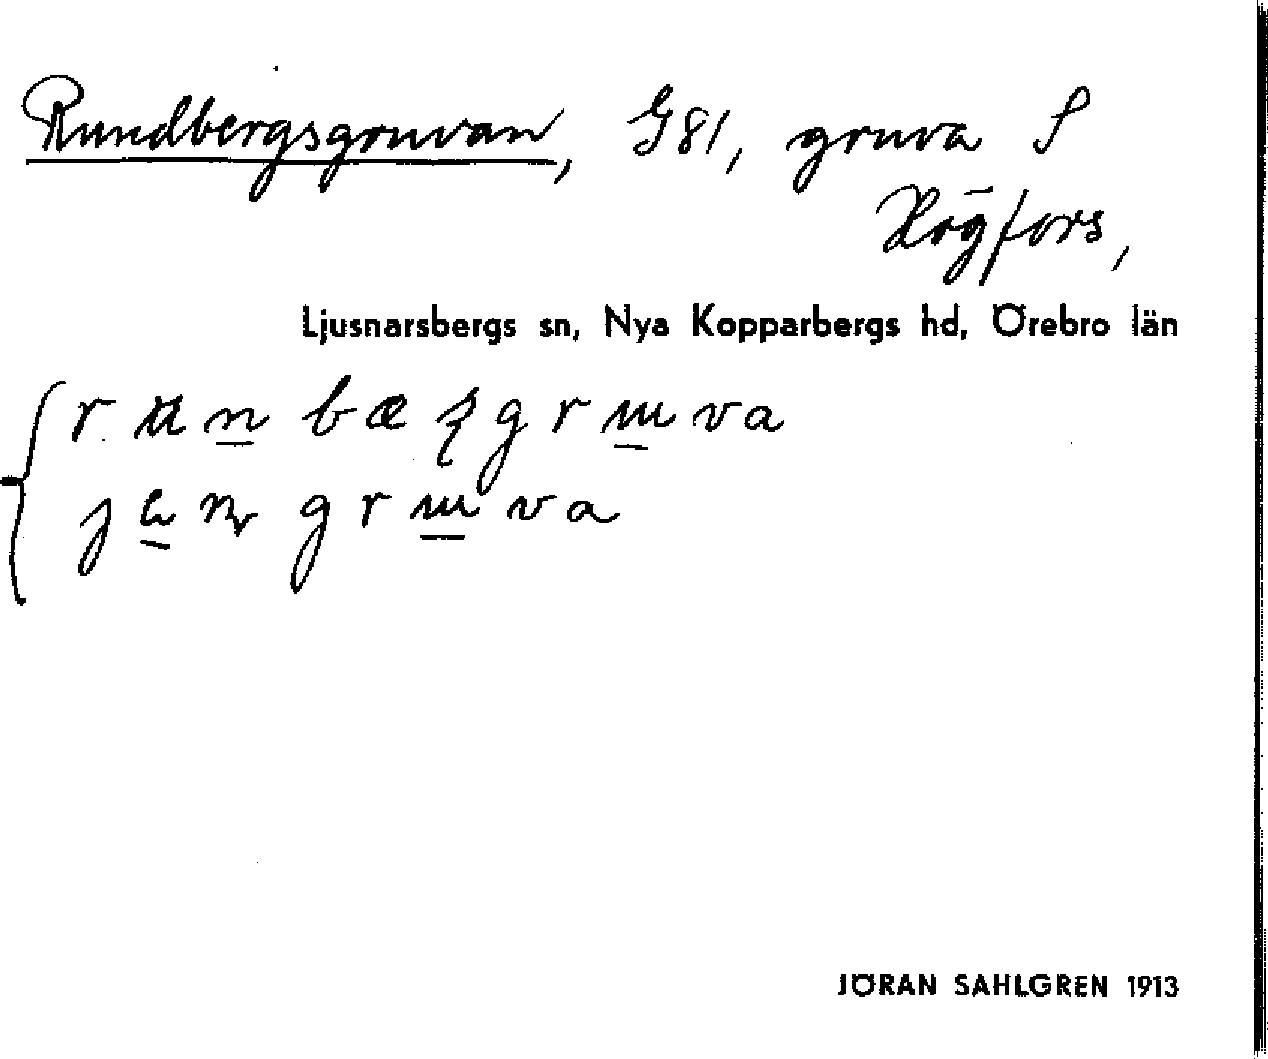 Rundbergsgruvan, G81, gruva S
Högfors,
Ljusnarsbergs sn, Nya Kopparbergs hd, Örebro län
JÖRAN SAHLGREN 1913